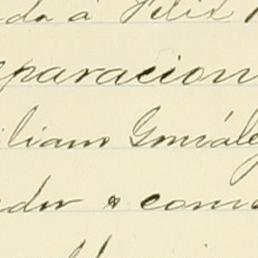 da á Felix
paracion
iliam Gonzále
ador & com